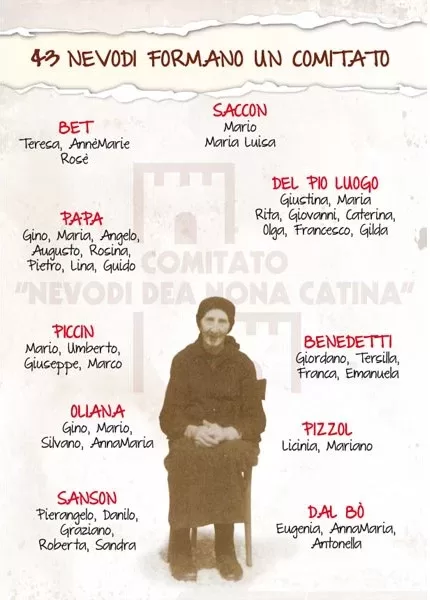 43 NEVODI FORMANO UN COMITATO
SACCON
Mario
Maria Luisa
BET
Teresa, AnnèMarie
Rosè
DEL PIO LUOGO
Giustina, Maria
Rita, Giovanni, Caterina,
Olga, Francesco, Gilda
PAPA
Gino, Maria, Angelo,
Augusto, Rosina,
Pietro, Lina, Guido
COMITATO
"NEVODI DEA NONA CATINA"
PICCIN
Mario, Umberto,
Giuseppe, Marco
BENEDETTI
Giordano, Tersilla,
Franca, Emanuela
OLIANA
Gino, Mario,
Silvano, AnnaMaria
PIZZOL
Licinia, Mariano
SANSON
Pierangelo, Danilo,
Graziano,
Roberta, Sandra
DAL BÒ
Eugenia, AnnaMaria,
Antonella